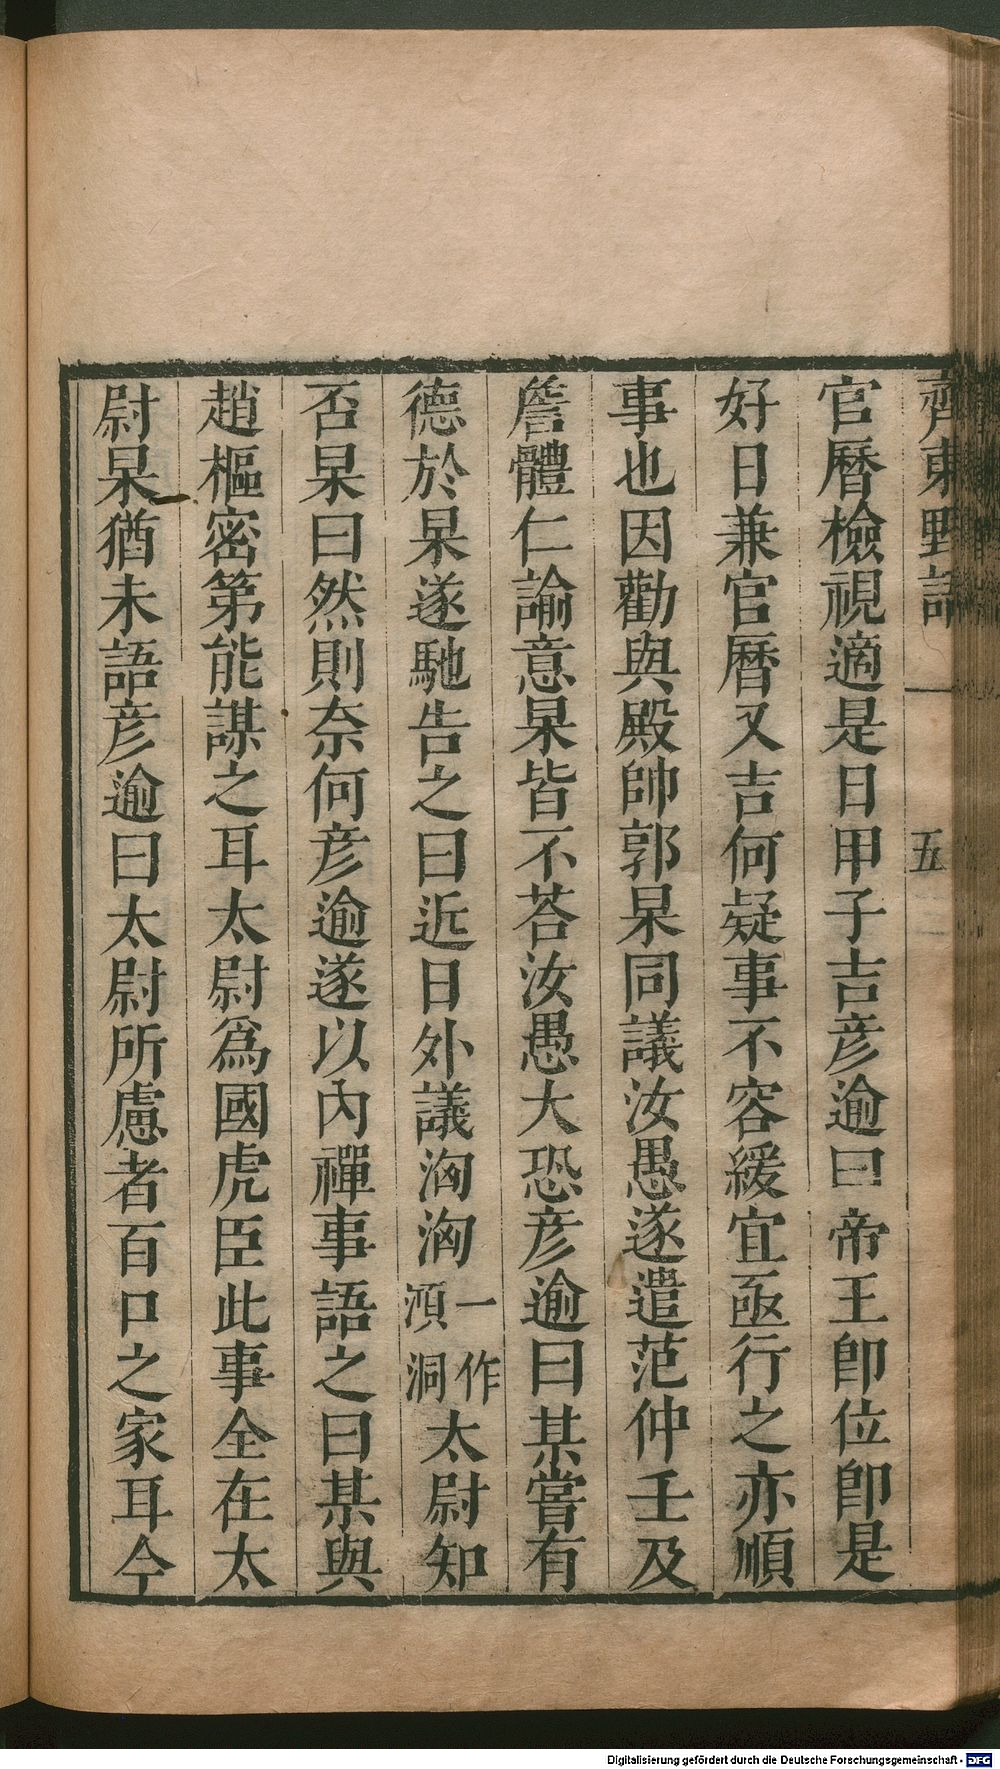 齊東野語　五
官曆檢視適是日甲子吉彦逾曰帝王卽位卽是
好日兼官曆又吉何疑事不容緩宜亟行之亦順
事也因勸與殿帥郭杲同議汝愚遂遣范仲壬及
詹體仁諭意杲皆不荅汝愚大恐彦逾曰某嘗有
德於杲遂馳告之曰近日外議洶洶一作澒洞太尉知
否杲曰然則奈何彦逾遂以內禪事語之曰某與
趙樞密第能謀之耳太尉爲國虎臣此事全在太
尉杲猶未語彦逾曰太尉所慮者百口之家耳今
Digitalisierung gefördert durch die Deutsche Forschungsgemeinschaft - DFG